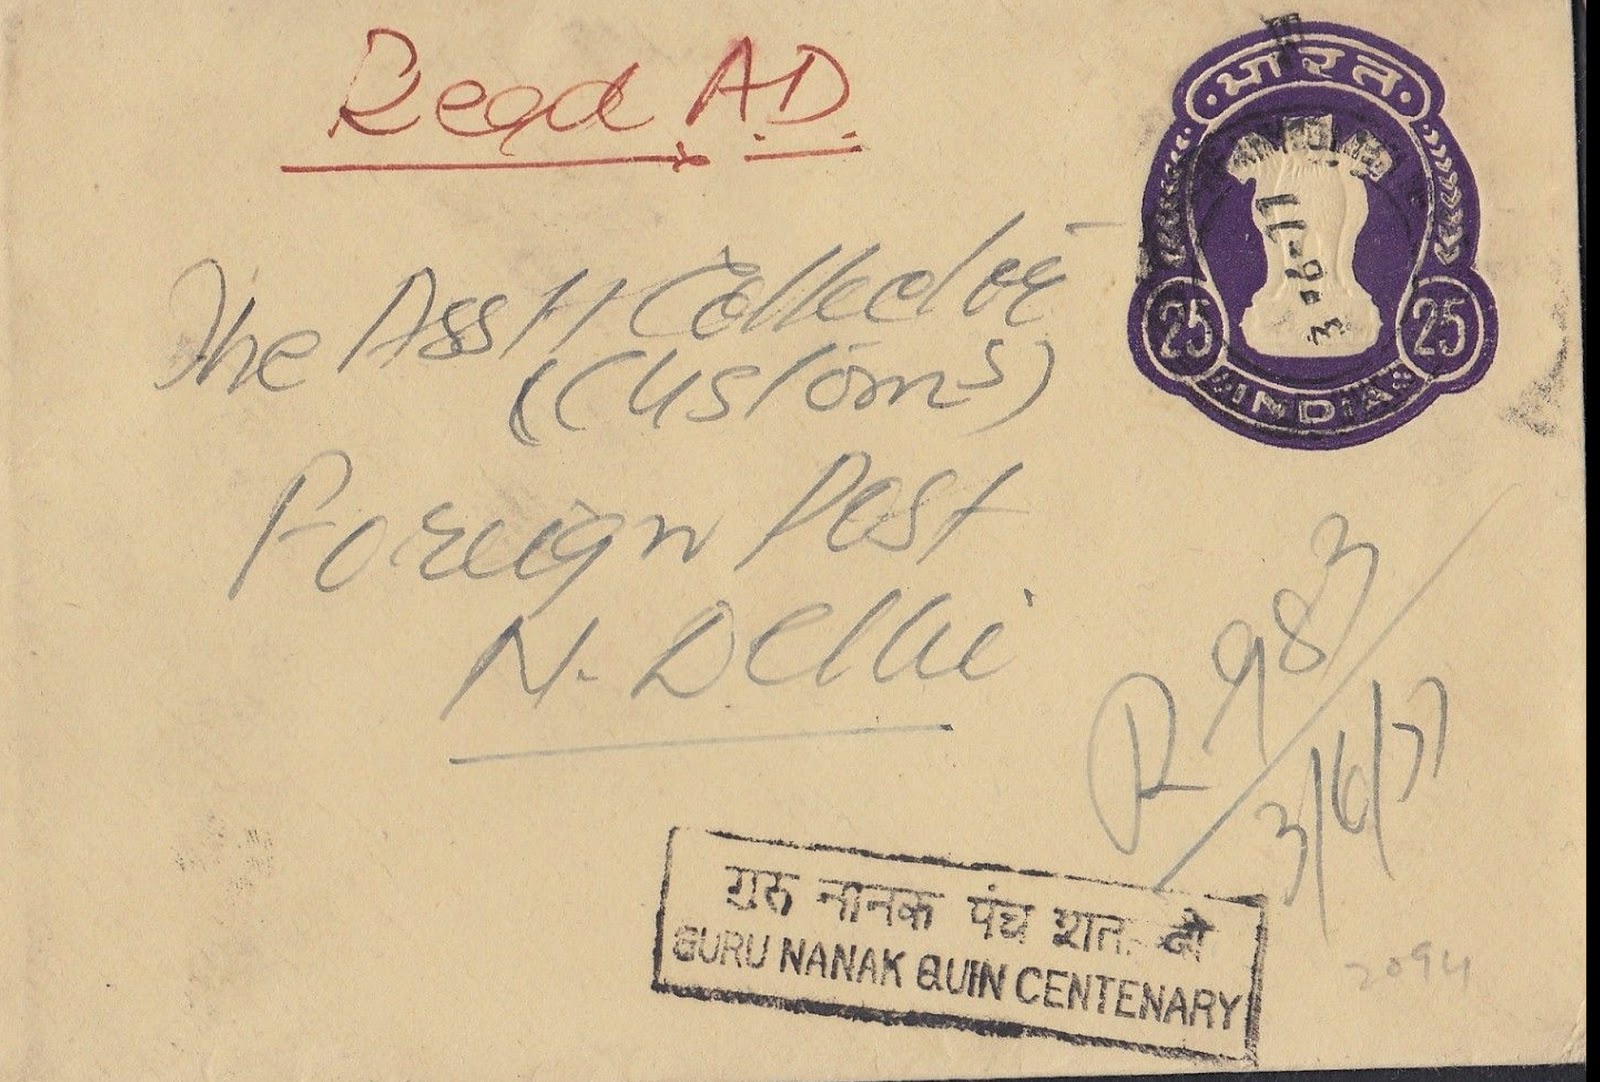 Regd A.D.
भारत
3-6-77
25 25
INDIA
The Asstt Collector
(Customs)
Foreign Post
N. Delhi
R 983
3/6/77
गुरु नानक पंच शत. दी
GURU NANAK QUIN CENTENARY
2094